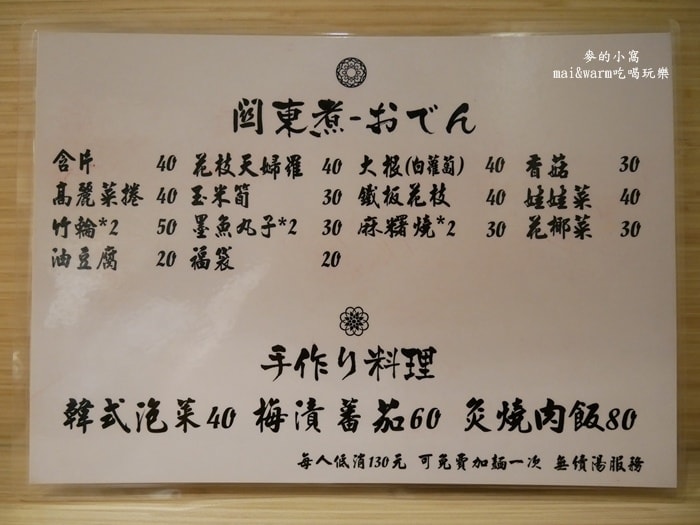 麥的小窩
mai&warm吃喝玩樂
關東煮-おでん
含片 40 花枝天婦羅 40 大根(白蘿蔔) 40 香菇 30
高麗菜捲 40 玉米筍 30 鐵板花枝 40 娃娃菜 40
竹輪*2 50 墨魚丸子*2 30 麻糬燒*2 30 花椰菜 30
油豆腐 20 福袋 20
手作り料理
韓式泡菜40 梅漬蕃茄60 炙燒肉飯80
每人低消130元 可免費加麵一次 無續湯服務